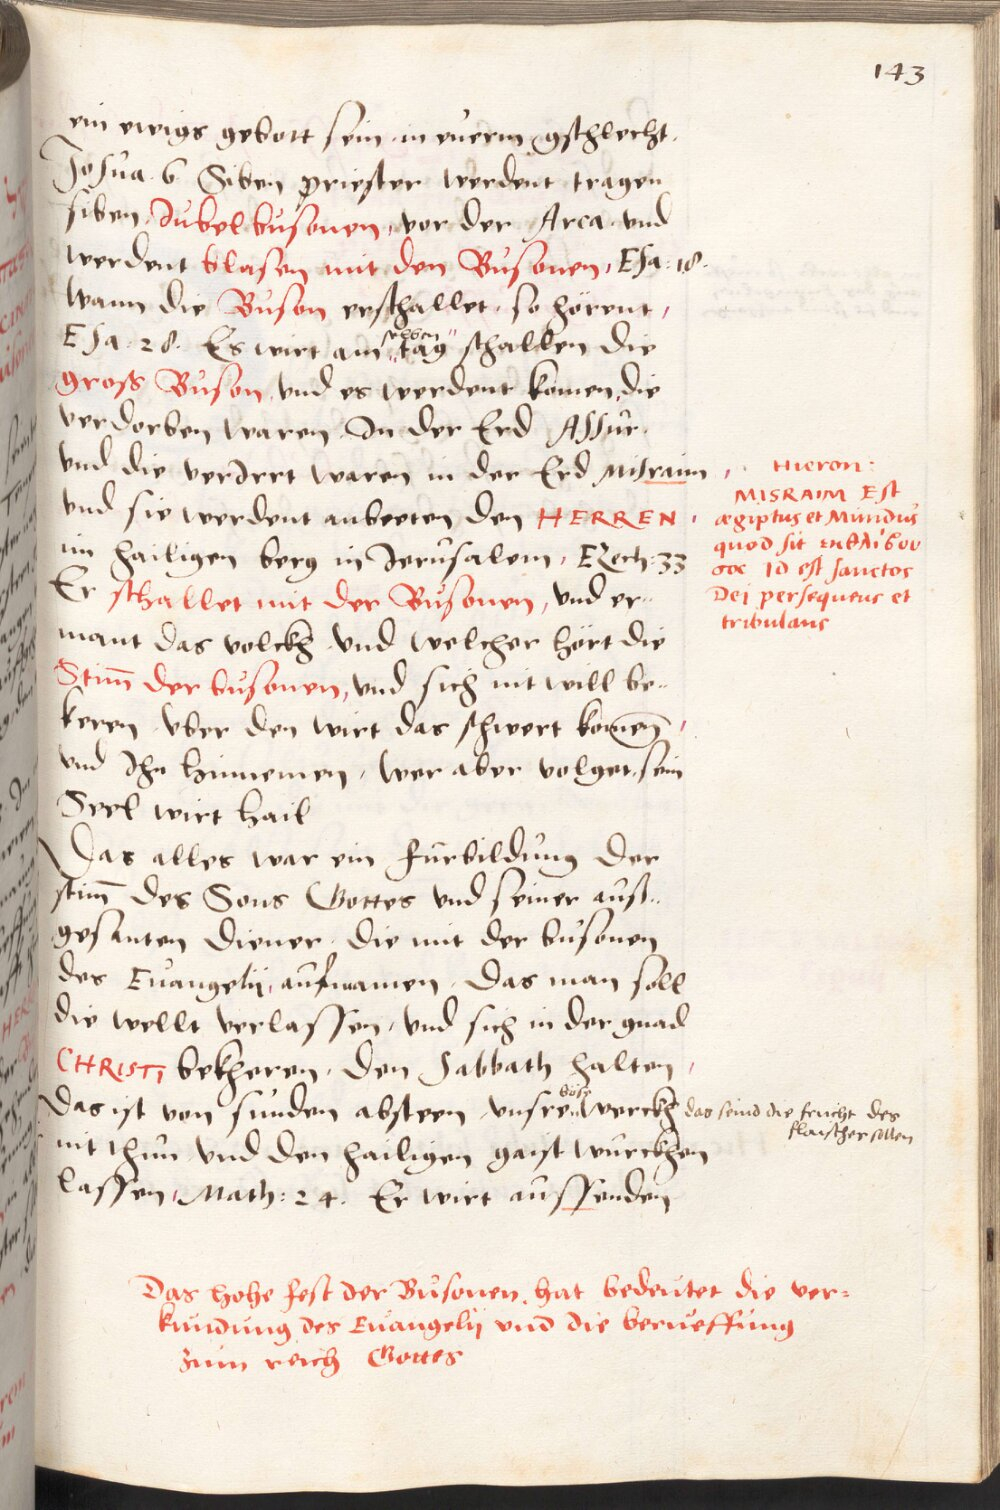 143
ein ewigs gebott sein in euerm gschlecht.
Josua . 6 Siben priester werdent tragen
siben Jubel busonen, vor der Arca vnd
werdent blasen mit den Busonen, Esa : 18 .
wann die Buson erschallet, so hörent,
Esa . 28 . Es wirt am selben tag schallen die
gross Buson, vnd es werdent komen, die
verdorben waren In der Erd Assur.
vnd die verIrrt waren in der Erd Misraim,
vnd sie werdent anbeeten den HERREN,
im hailigen berg in Jerusalem, EZech : 33
Er schallet mit der Busonen, vnd er-
mant das volckh vnd welcher hört die
Stim̄ der busonen, vnd sich nit will be-
keren vber den wirt das schwert komen̄,
vnd Ihn hinnemen, wer aber volget, sein
Seel wirt hail
Das alles war ein furbildung der
stim̄ des Sons Gottes vnd seiner auss-
gesanten Diener, die mit der busonen
des Euangelij, aufmanen, Das man soll
die wellt verlassen, vnd sich in der gnad
CHRISTI bekheren, den Sabbath halten,
Das ist von sunden absteen vnsre böse werckh
nit thun vnd den hailigen gaist wurckhen
lassen, Math : 24 . Er wirt aussenden
Hieron :
MISRAIM Est
ægiptus et Mundus
quod sit
id est sanctos
Dei persequens et
tribulans
das seind die frucht des
flaisches
Das hohe fest der Busonen, hat bedeutet die ver=
kundung des Euangelij vnd die berueffung
zum reich Gottes